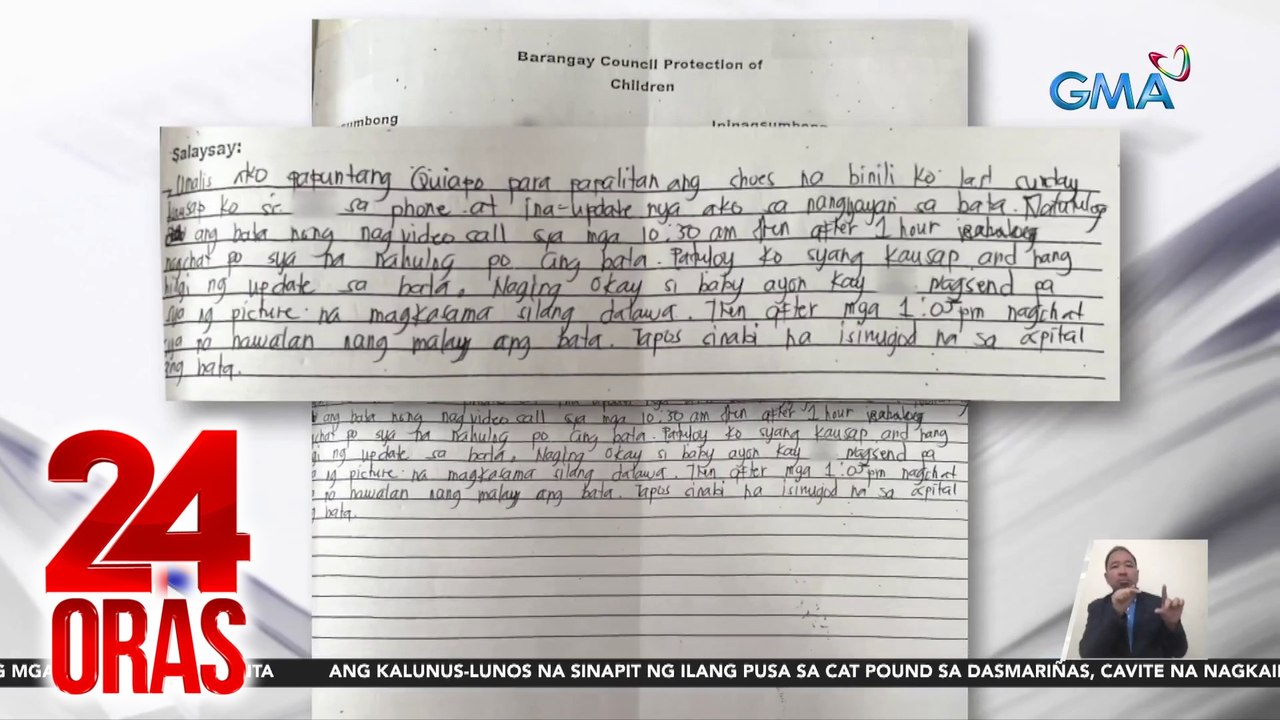 Barangay Council Protection of
Children
GMA
sumbong
Ipinagsumbong
Salaysay:
Umalis ako papuntang Quiapo para papalitan ang shoes na binili ko last sunday
kausap ko si sa phone at ina-update nya ako sa nangyayari sa bata. Natutulog
ang bata nong nag video call sya mga 10:30 am then after 1 hour
nagchat po sya na nahulog po ang bata. Patuloy ko syang kausap and nang
hihigi ng update sa bata. Naging Okay si baby ayon kay nagsend pa
sya ng picture na magkasama silang dalawa. Then after mga 1:05 pm nagchat
sya na nawalan nang malay ang bata. Tapos sinabi na isinugod na sa ospital
ang bata.
ang bata nong nag video call sya mga 10:30 am then after 1 hour
chat po sya na nahulog po ang bata. Patuloy ko syang kausap and nang
gi ng update sa bata. Naging Okay si baby ayon kay nagsend pa
ng picture na magkasama silang dalawa. Then after mga 1:05 pm nagchat
na nawalan nang malay ang bata. Tapos sinabi na isinugod na sa ospital
bata.
24
ORAS
G MGA ITA ANG KALUNUS-LUNOS NA SINAPIT NG ILANG PUSA SA CAT POUND SA DASMARIÑAS, CAVITE NA NAGKAI